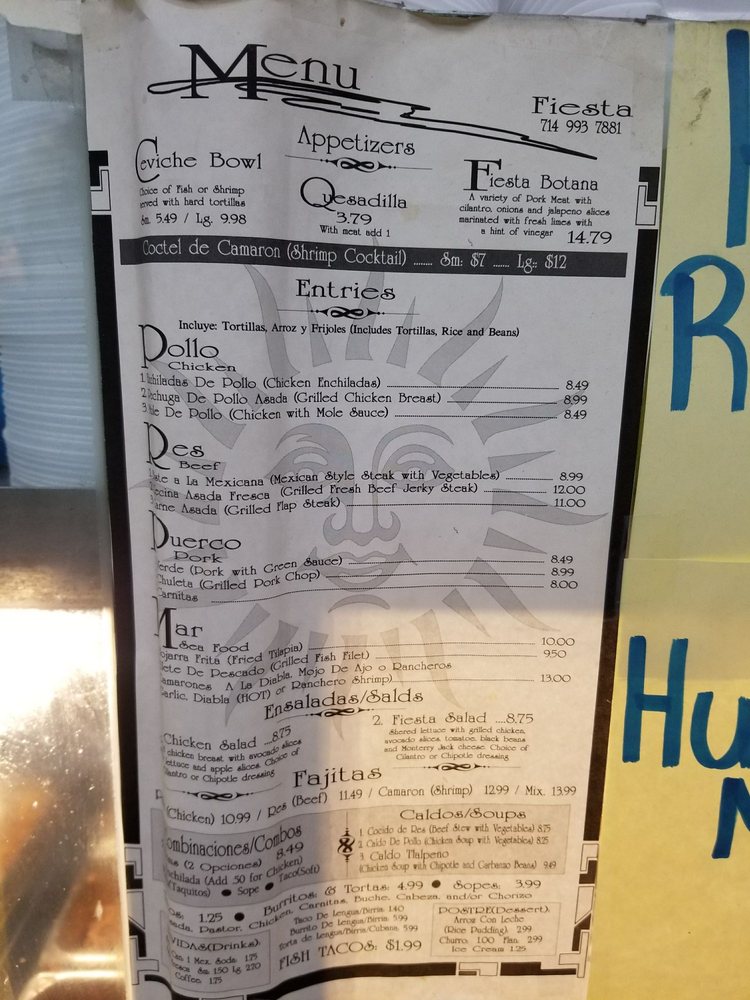 Menu
Fiesta
714 993 7881
Appetizers
Ceviche Bowl
Choice of Fish or Shrimp
served with hard tortillas
Sm. 5.49 / Lg. 9.98
Quesadilla
3.79
With meat add 1
Fiesta Botana
A variety of Pork Meat with
cilantro, onions and jalapeno slices
marinated with fresh limes with
a hint of vinegar 14.79
Coctel de Camaron (Shrimp Cocktail) ........ Sm: $7 ...... Lg:: $12
Entries
Incluye: Tortillas, Arroz y Frijoles (Includes Tortillas, Rice and Beans)
Pollo
Chicken
1. nchiladas De Pollo (Chicken Enchiladas) 8.49
2. echuga De Pollo Asada (Grilled Chicken Breast) 8.99
3. ole De Pollo (Chicken with Mole Sauce) 8.49
Res
Beef
a La Mexicana (Mexican Style Steak with Vegetables) 8.99
ecina Asada Fresca (Grilled Fresh Beef Jerky Steak) 12.00
arne Asada (Grilled Flap Steak) 11.00
Puerco
Pork
erde (Pork with Green Sauce) 8.49
Chuleta (Grilled Pork Chop) 8.99
Carnitas 8.00
Mar
Sea Food
ojarra Frita (Fried Tilapia) 10.00
ete De Pescado (Grilled Fish Filet) 9.50
amarones A La Diabla, Mojo De Ajo o Rancheros
arlic, Diabla (HOT) or Ranchero Shrimp) 13.00
Ensaladas/Salds
Chicken Salad ....8.75
chicken breast with avocado slices
lettuce and apple slices. Choice of
ilantro or Chipotle dressing
2. Fiesta Salad ....8.75
Shered lettuce with grilled chicken,
avocado slices, tomatoe, black beans
and Monterry Jack cheese. Choice of
Cilantro or Chipotle dressing
Fajitas
P (Chicken) 10.99 / Res (Beef) 11.49 / Camaron (Shrimp) 12.99 / Mix. 13.99
ombinaciones/Combos
as (2 Opciones) 8.49
nchilada (Add .50 for Chicken)
(Taquitos) ● Sope ● Taco(Soft)
Caldos/Soups
1. Cocido de Res (Beef Stew with Vegetables) 8.75
2. Caldo De Pollo (Chicken Soup with Vegetables) 8.25
3. Caldo Tlalpeno
(Chicken Soup with Chipotle and Garbanzo Beans) 9.49
os: 1.25 ● Burritos: & Tortas: 4.99 ● Sopes: 3.99
sada, Pastor, Chicken, Carnitas, Buche, Cabeza, and/or Chorizo
Taco De Lengua/Birria: 1.40
Burrito De Lengua/Birria: 5.99
Torta de Lengua/Birria/Cubana: 5.99
FISH TACOS: $1.99
VIDAS(Drinks):
Can 1 Mex. Soda: 1.75
Sm 1.50 Lg 2.70
Coffee: 1.75
POSTRE(Dessert):
Arroz Con Leche
(Rice Pudding) 2.99
Churro: 1.00 Flan: 2.99
Ice Cream 1.25
R
Hu
N